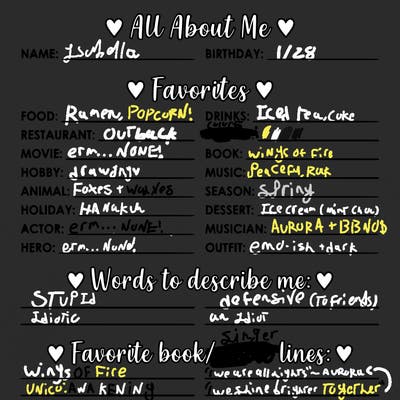 ♥ All About Me ♥
NAME: Isabella BIRTHDAY: 1/28
♥ Favorites ♥
FOOD: Ramen, POPCORN! DRINKS: Iced tea, coke
RESTAURANT: Outback
MOVIE: erm... NONE! BOOK: Wings of Fire
HOBBY: drawing MUSIC: Peaceful
ANIMAL: Foxes + wolves SEASON: Spring
HOLIDAY: HANakuh DESSERT: Ice cream (mint choc)
ACTOR: erm... NONE! MUSICIAN: AURORA + BBNO$
HERO: erm... NONE! OUTFIT: emo-ish + dark
♥ Words to describe me: ♥
STUPID defensive (To friends)
Idiotic an Idiot
Singer
♥ Favorite book/ lines: ♥
Wings OF Fire "we are all nights"~AURORA
UNICO: AWAKENING we shine brighter Together